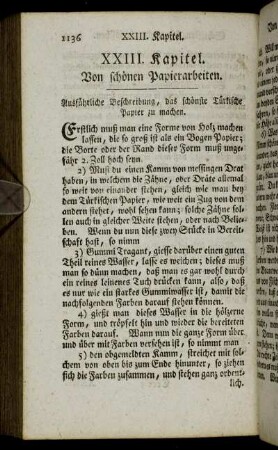 1136 XXIII. Kapitel.
XXIII. Kapitel.
Von schönen Papierarbeiten.
Ausführliche Beschreibung, das schönste Türkische
Papier zu machen.
Erstlich muß man eine Forme von Holz machen
lassen, die so groß ist als ein Bogen Papier;
die Borte oder der Rand dieser Form muß unge-
fähr 2. Zoll hoch seyn.
2) Muß du einen Kamm von messingen Drat
haben, in welchem die Zähne, oder Dräte allemal
so weit von einander stehen, gleich wie man bey
dem Türkischen Papier, wie weit ein Zug von dem
andern stehet, wohl sehen kann; solche Zähne sol-
len auch in gleicher Weite stehen, oder nach Belie-
ben. Wenn du nun diese zwey Stücke in Bereit-
schaft hast, so nimm
3) Gummi Tragant, giesse darüber einen guten
Theil reines Wasser, lasse es weichen; dieses muß
man so dünn machen, daß man es gar wohl durch
ein reines leinenes Tuch drücken kann, also, daß
es nur wie ein starkes Gummiwasser ist, damit die
nachfolgenden Farben darauf stehen können.
4) giest man dieses Wasser in die hölzerne
Form, und tröpfelt hin und wieder die bereiteten
Farben darauf. Wann nun die ganze Form über
und über mit Farben versehen ist, so nimmt man
5) den obgemeldten Kamm, streichet mit sol-
chem von oben bis zum Ende hinunter, so ziehen
sich die Farben zusammen, und stehen ganz ordent-
lich.